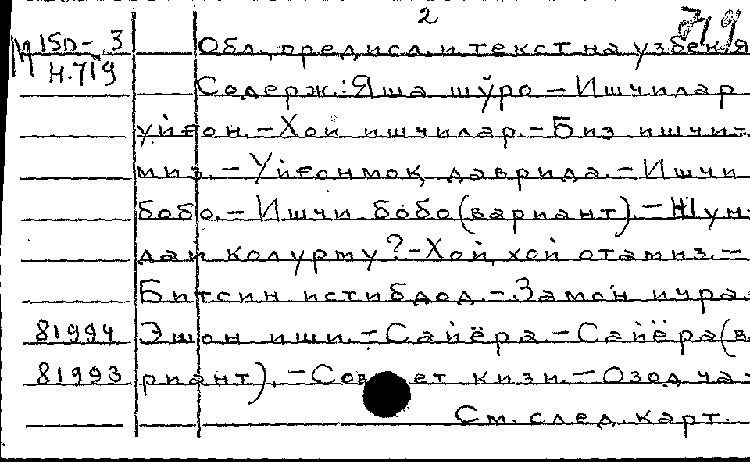 2
719
М 150-3 Обл., предисл. и текст на узбек.я
Н.719
Содерж.: Яша шўро – Ишчилар
уйғон. – Хой ишчилар. – Биз ишчи-
миз. – Уйғонмоқ даврида. – Ишчи
бобо. – Ишчи бобо (вариант). – Шун-
дай колурму? – Хой, хой отамиз. –
Битсин истибдод. – Замон ичра
81994 Эшон иши. – Сайёра. – Сайёра (в
81993 риант). – Совет кизи. – Озод ча
См. след. карт.